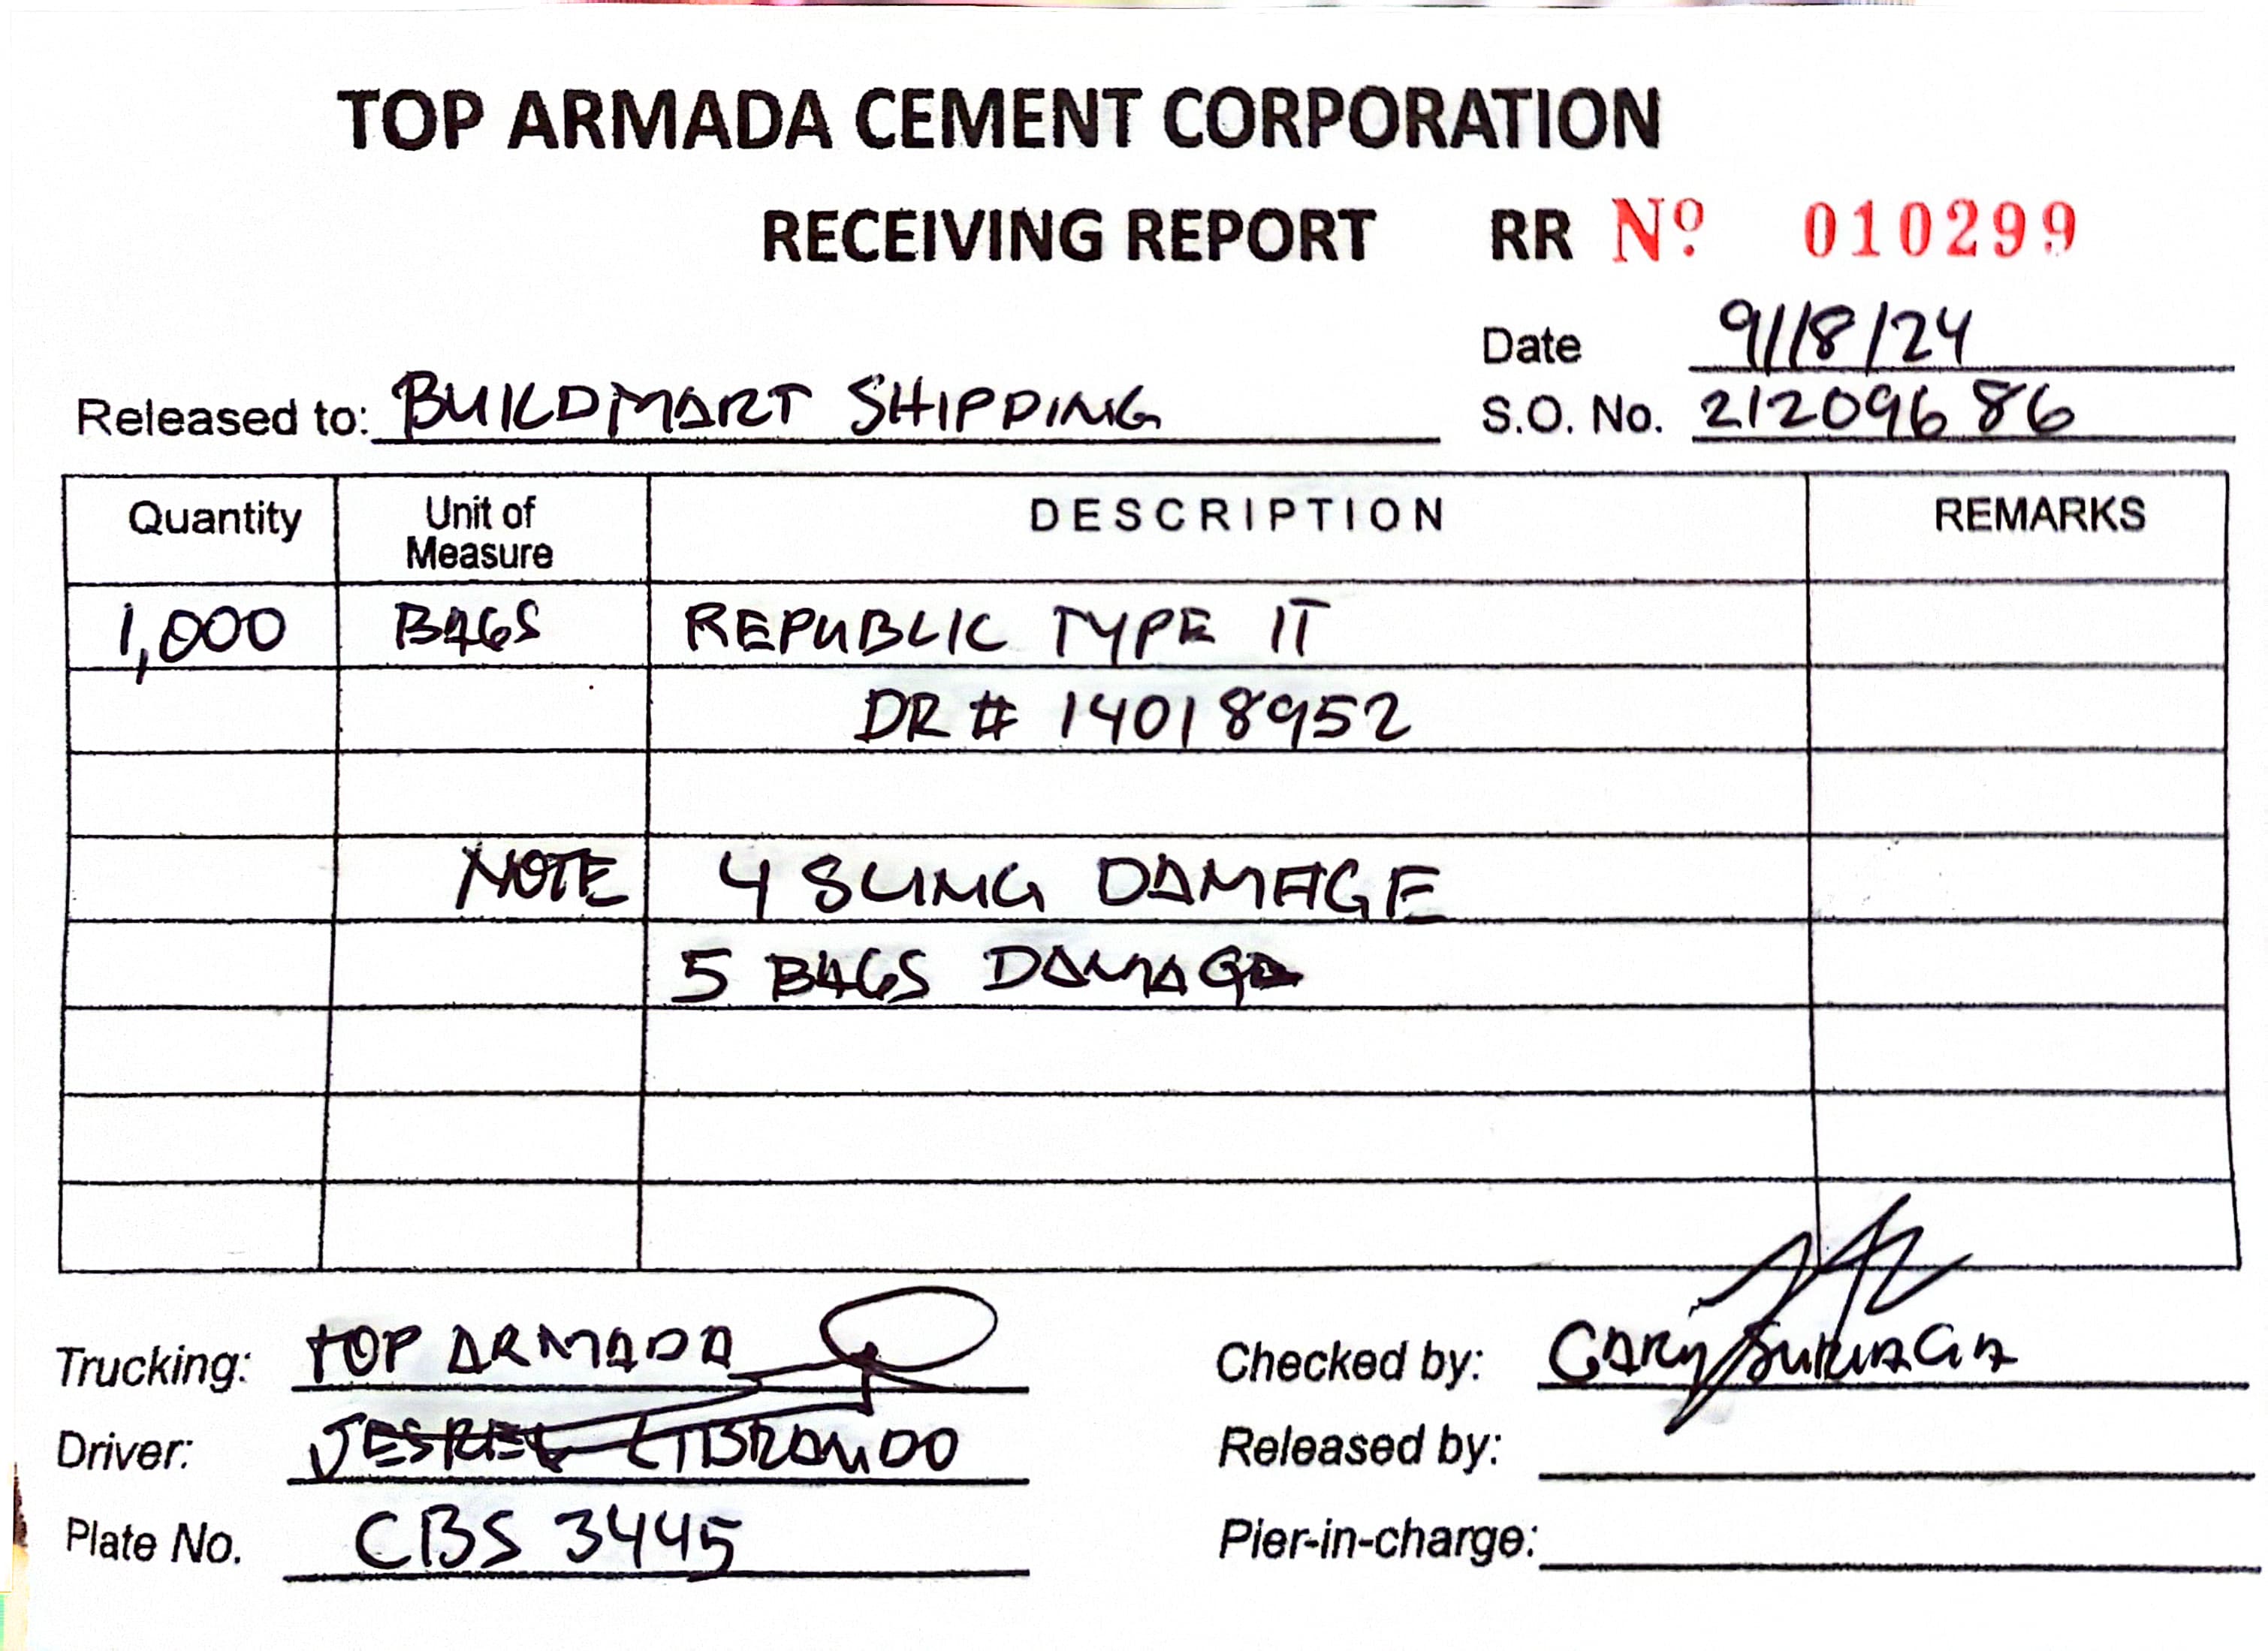 TOP ARMADA CEMENT CORPORATION
RECEIVING REPORT RR Nº 010299
Date 9/18/24
Released to: BUILDMART SHIPPING S.O. No. 21209686
Quantity Unit of Measure DESCRIPTION REMARKS
1,000 BAGS REPUBLIC TYPE 1T
DR # 14018952
NOTE 4 SLING DAMAGE
5 BAGS DAMAGE
Trucking: TOP ARMADA Checked by: GARY
Driver: JESREL LIBRANDO Released by:
Plate No. CBS 3445 Pier-in-charge: